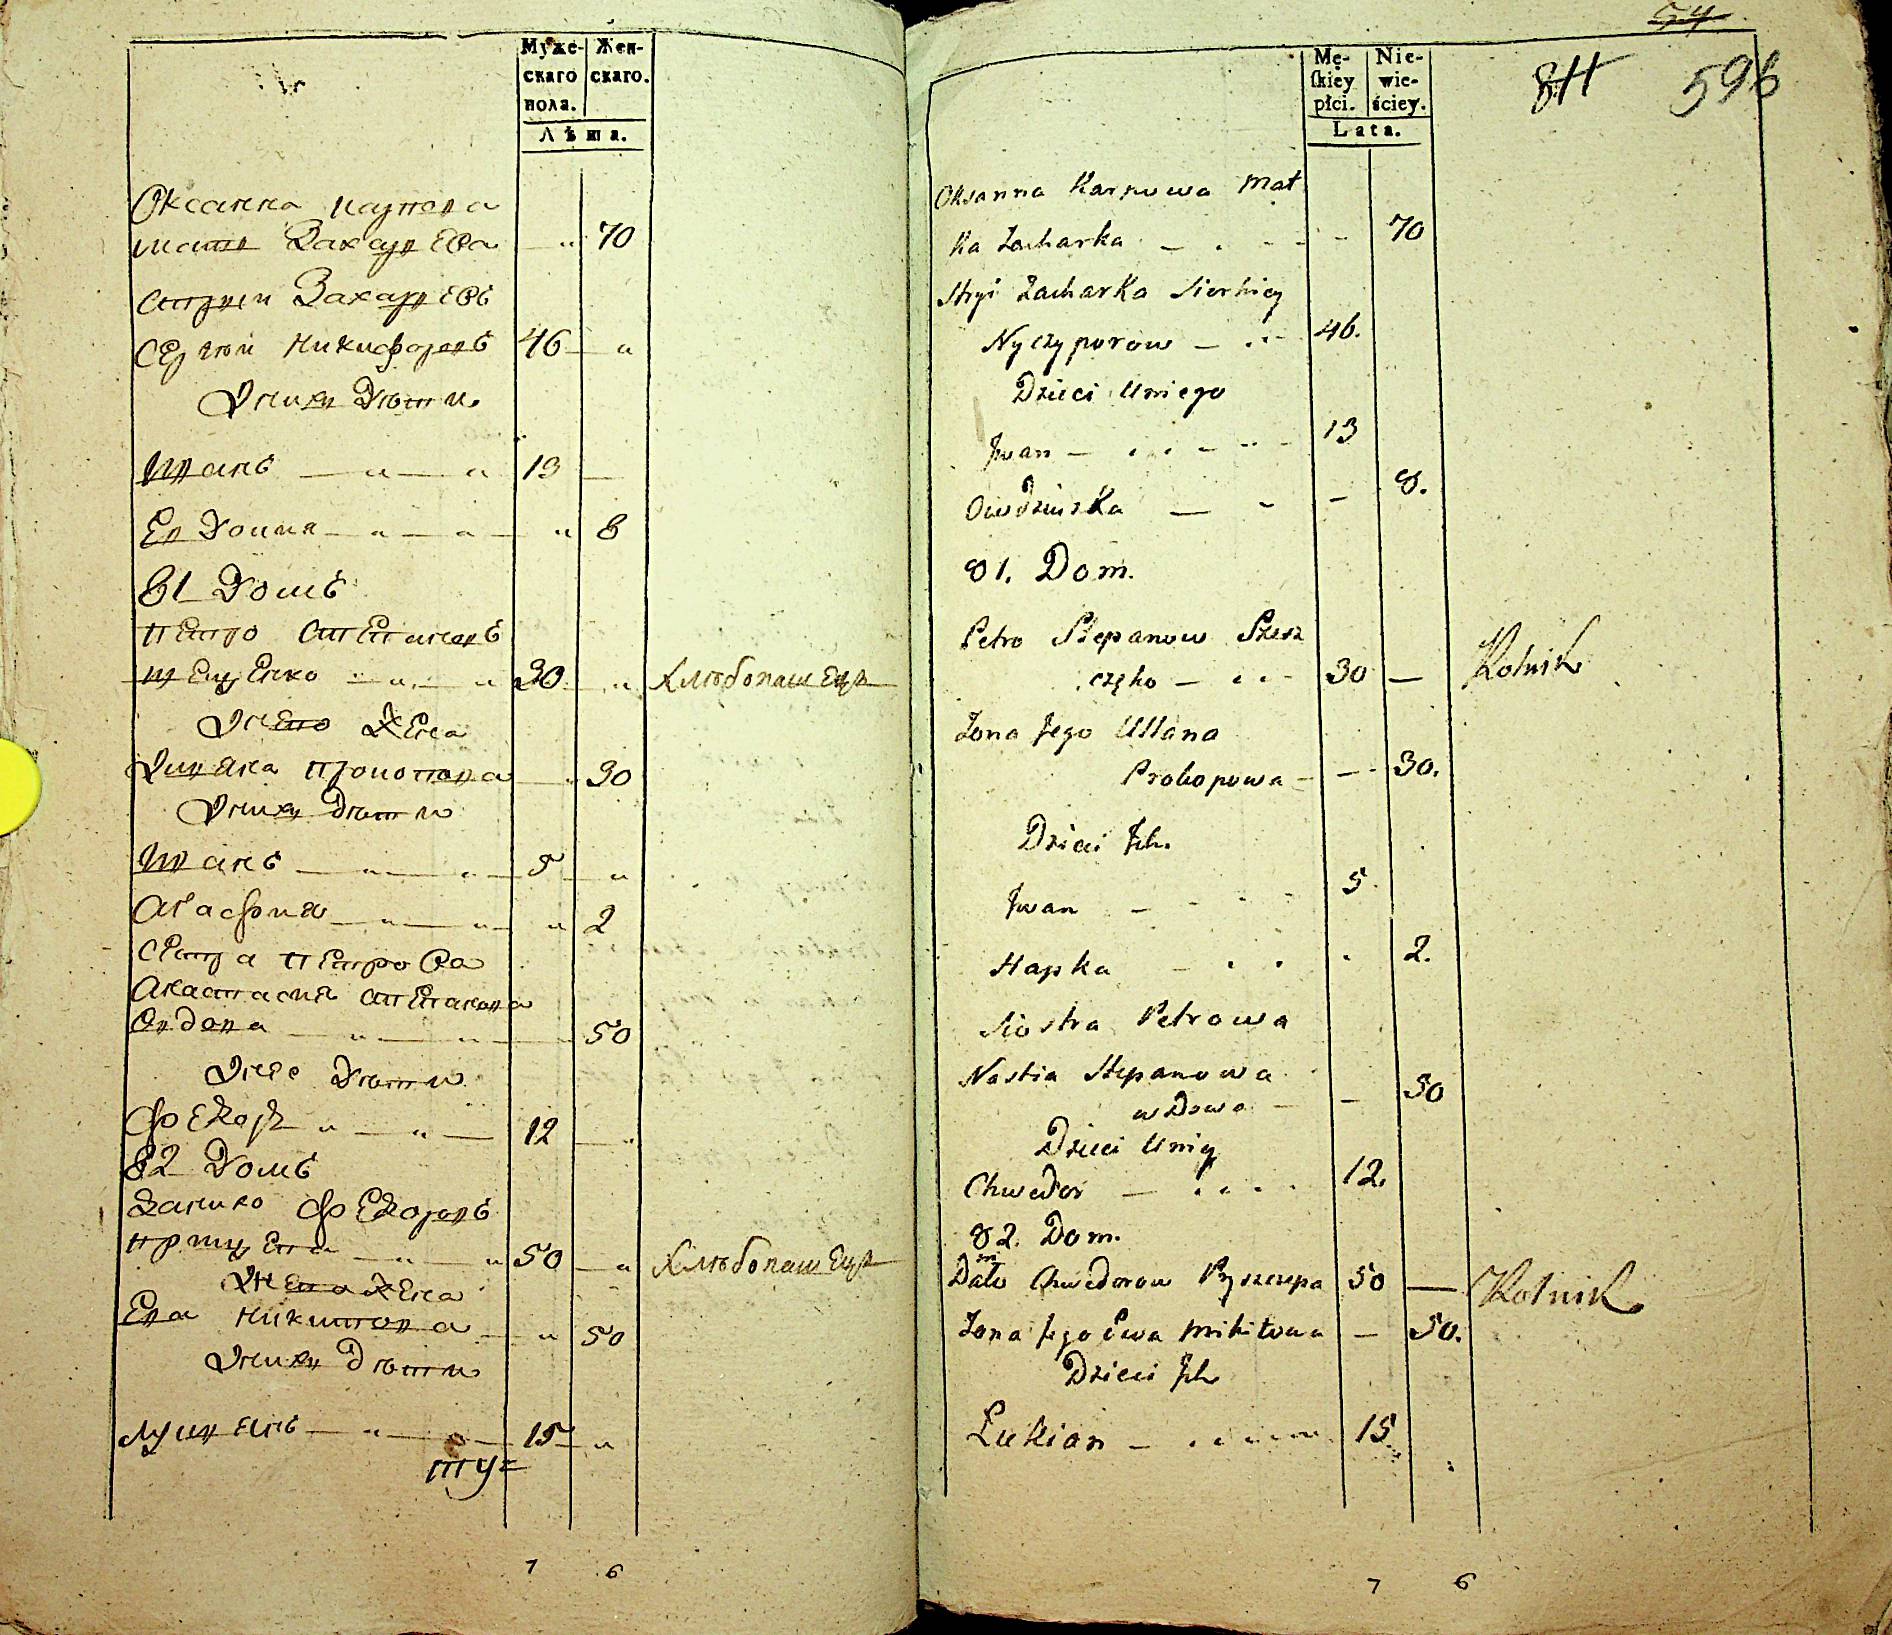 Муже-
скаго
пола.
Жен-
скаго.
Лѣта.
Оксанна карпова
мать Захарева 70
стрый Захаревъ
Сергѣй Никифоровъ 46
У нихъ Дѣти
Иванъ 13
Евдокия 8
81 Домъ
Петро Степановъ
30 Хлѣбопашецъ
У него Жена
Улияна Прокопова 30
У нихъ дѣти
Иванъ 5
Агафия 2
Сестра Петрова
Анастасия Степанова
Вдова 50
У нее Дѣти
Федоръ 12
82 Домъ
Данило Федоровъ
50 Хлѣбопашецъ
У него Жена
Ева Никитова 50
У нихъ дѣти
Лукиянъ 15
ту=
7 6
54
811 596
Mę-
skiey
płci.
Nie-
wie-
ściey.
Lata.
Oksanna Karpowa Mat
ka Zacharka 70
Stryi Zacharka Sierhiey
Nyczyporow 46.
Dzieci Uniego
Jwan 13
Owdziuszka 8.
81. Dom.
Petro Stepanow Szesz
częko 30 Rolnik
Zona Jego Ullana
Prokopowa 30.
Dzieci Jch.
Jwan 5
Hapka 2.
Siostra Petrowa
Nastia Stepanowa
wdowa 50
Dzieci Uniey
Chwedor 12.
82. Dom.
Chwedorow Pryszczepa 50 Rolnik
Zona Jego Ewa Mikitowa 50.
Dzieci Jch
Łukian 15
7 6